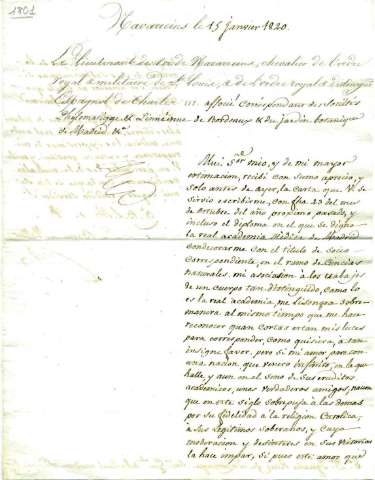 1801
Navarreins le 15 janvier 1820.
Le Lieutenant de Roi de Navarreins, chevalier de l'ordre
royal & militaire de St Louis, & de l'ordre royal & distingué
Espagnol de Charles III. associé correspondant des sociétés
Linnéenne de Bordeaux & du jardin botanique
de Madrid &c.
Mui Sor mio, y de mi mayor
estimacion, recibi con sumo aprecio, y
solo antes de ayer, la carta que V. se
sirvio escribirme, con fha 23 del mes
de octubre del año proximo pasado, y
incluso el diploma en el que se digno
la real academia Medica de Madrid
condecorarme con el titulo de socio
correspondiente, en el ramo de ciencias
naturales. mi asociacion à los trabajos
de un cuerpo tan distinguido, como lo
es la real academia, me lisongea sobre-
manera al mismo tiempo que me hace
reconocer quan cortas estan mis luces
para corresponder, como quisiera, à tan
insigne favor, pero si mi amor para con
una nacion, que venero infinito, en la que
halle, y aun en el seno de sus eruditos
academicos, unos verdaderos amigos, nacion
que en este siglo sobrepuja à las demas
por su fidelidad à la religion Catolica,
a sus legitimos soberanos, y cuya
moderacion y en sus victorias
la hace impar, si pues este amor que